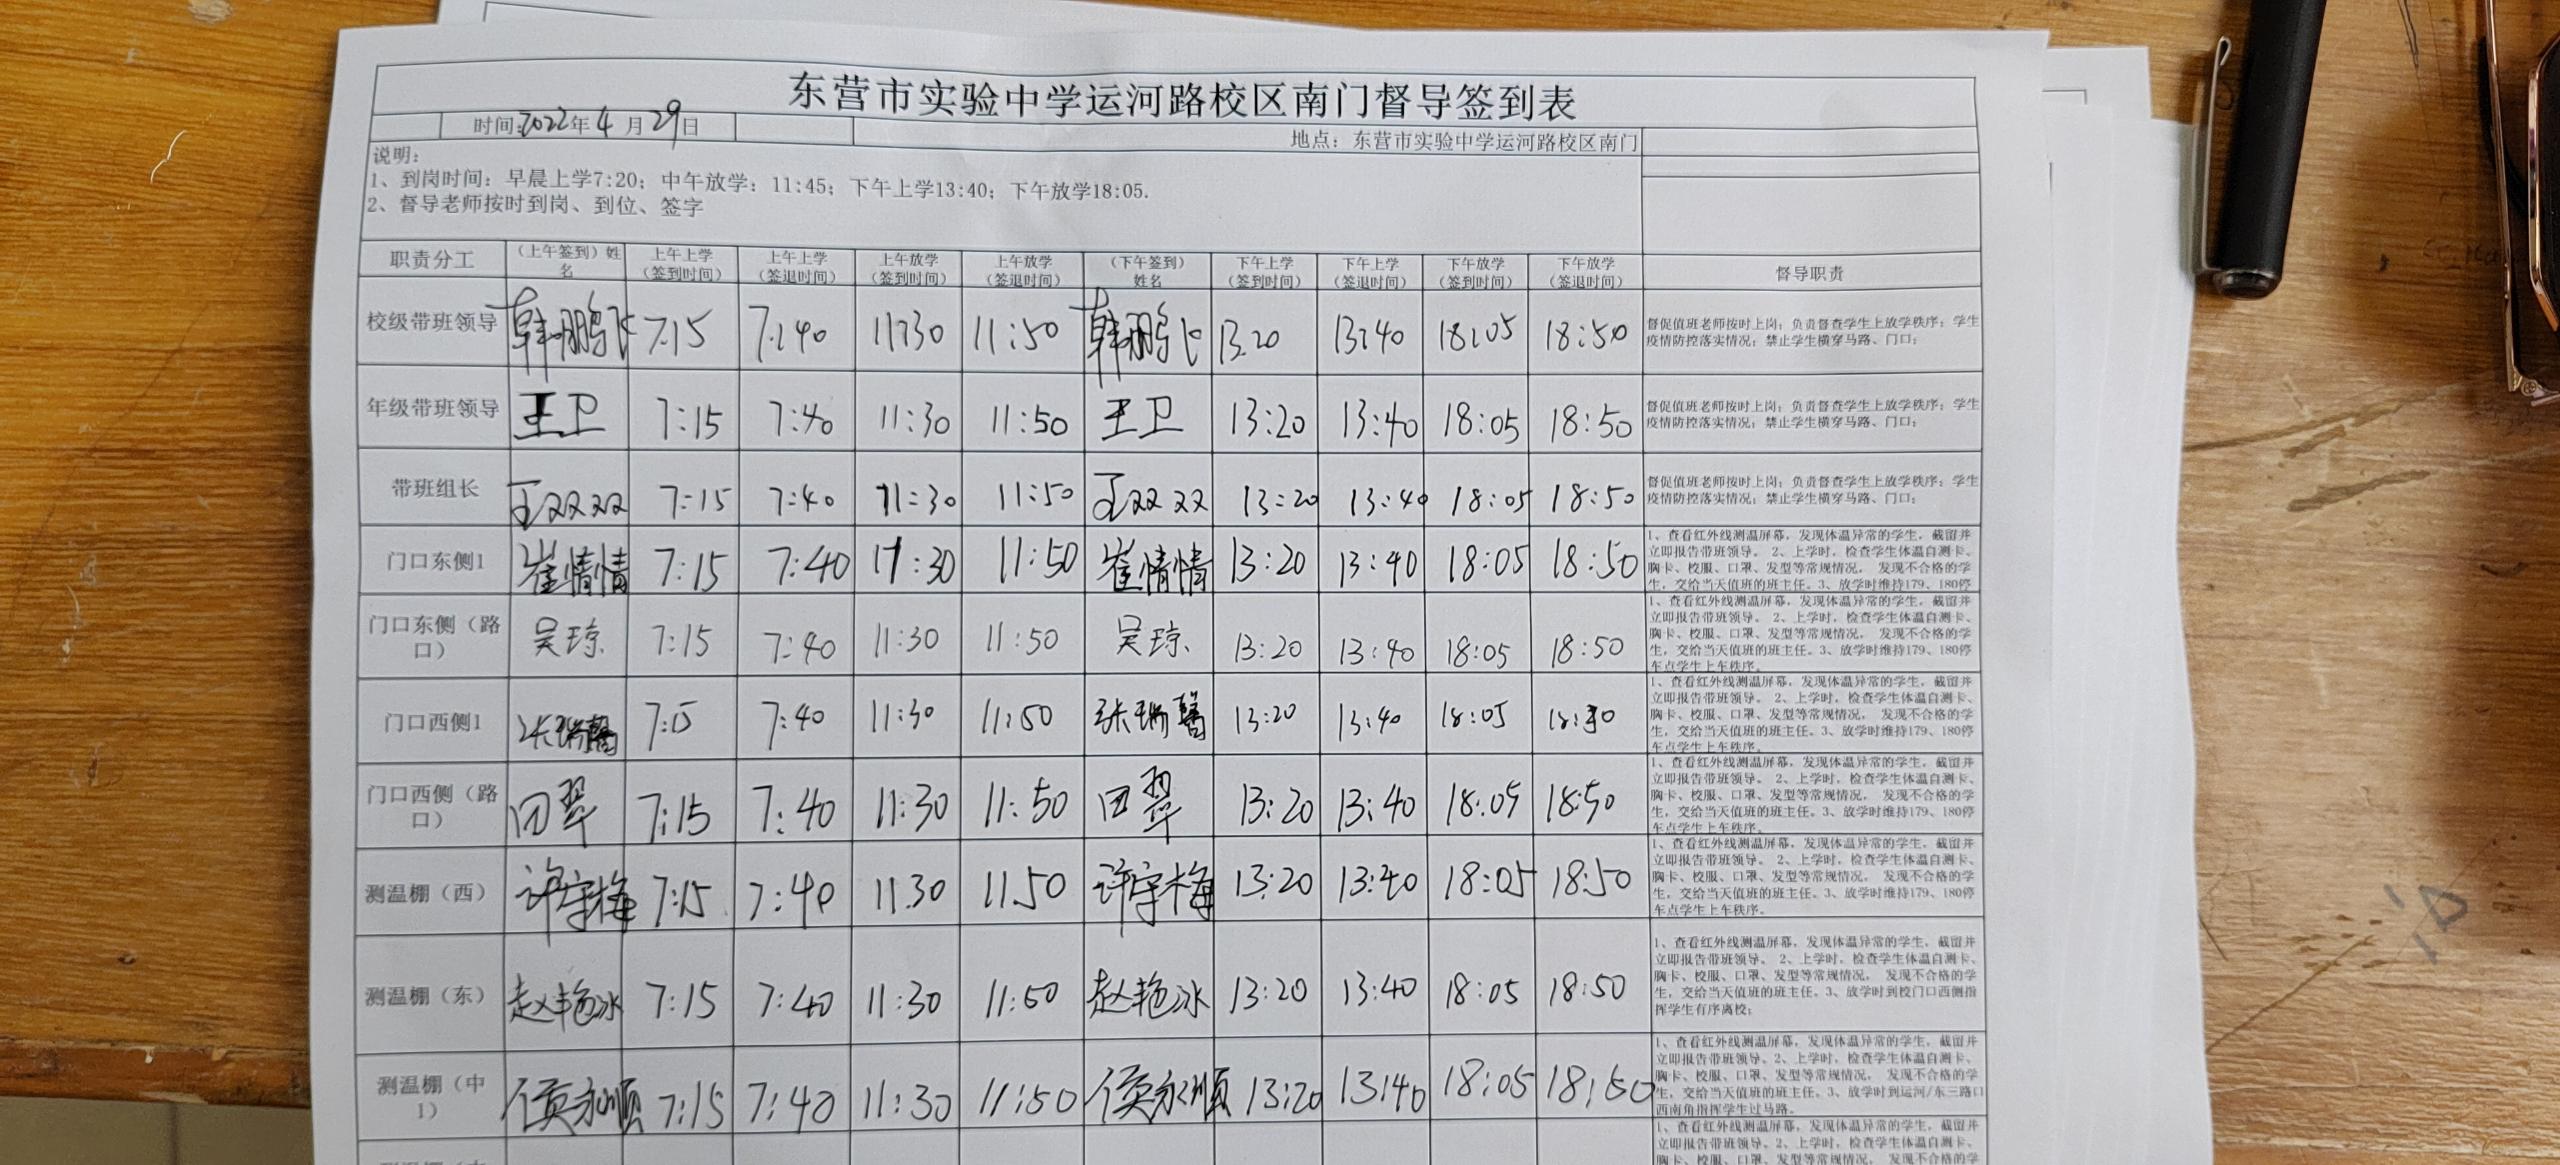 东营市实验中学运河路校区南门督导签到表
时间:2022年4月29日
地点：东营市实验中学运河路校区南门
说明：
1、到岗时间：早晨上学7:20；中午放学：11:45；下午上学13:40；下午放学18:05.
2、督导老师按时到岗、到位、签字
职责分工 （上午签到）姓名 上午上学（签到时间） 上午上学（签退时间） 上午放学（签到时间） 上午放学（签退时间） （下午签到）姓名 下午上学（签到时间） 下午上学（签退时间） 下午放学（签到时间） 下午放学（签退时间） 督导职责
校级带班领导 韩鹏飞 7:15 7:40 11:30 11:50 韩鹏飞 13:20 13:40 18:05 18:50
督促值班老师按时上岗；负责督查学生上放学秩序；学生
疫情防控落实情况；禁止学生横穿马路、门口；
年级带班领导 王卫 7:15 7:40 11:30 11:50 王卫 13:20 13:40 18:05 18:50
督促值班老师按时上岗；负责督查学生上放学秩序；学生
疫情防控落实情况；禁止学生横穿马路、门口；
带班组长 王双双 7:15 7:40 11:30 11:50 王双双 13:20 13:40 18:05 18:50
督促值班老师按时上岗；负责督查学生上放学秩序；学生
疫情防控落实情况；禁止学生横穿马路、门口；
门口东侧1 崔情情 7:15 7:40 11:30 11:50 崔情情 13:20 13:40 18:05 18:50
1、查看红外线测温屏幕，发现体温异常的学生，截留并
立即报告带班领导。 2、上学时，检查学生体温自测卡、
胸卡、校服、口罩、发型等常规情况， 发现不合格的学
生，交给当天值班的班主任。3、放学时维持179、180停
门口东侧（路口） 吴琼 7:15 7:40 11:30 11:50 吴琼 13:20 13:40 18:05 18:50
1、查看红外线测温屏幕，发现体温异常的学生，截留并
立即报告带班领导。 2、上学时，检查学生体温自测卡、
胸卡、校服、口罩、发型等常规情况， 发现不合格的学
生，交给当天值班的班主任。3、放学时维持179、180停
车点学生上车秩序。
门口西侧1 张瑞馨 7:15 7:40 11:30 11:50 张瑞馨 13:20 13:40 18:05 18:50
1、查看红外线测温屏幕，发现体温异常的学生，截留并
立即报告带班领导。 2、上学时，检查学生体温自测卡、
胸卡、校服、口罩、发型等常规情况， 发现不合格的学
生，交给当天值班的班主任。3、放学时维持179、180停
车点学生上车秩序。
门口西侧（路口） 田翠 7:15 7:40 11:30 11:50 田翠 13:20 13:40 18:05 18:50
1、查看红外线测温屏幕，发现体温异常的学生，截留并
立即报告带班领导。 2、上学时，检查学生体温自测卡、
胸卡、校服、口罩、发型等常规情况， 发现不合格的学
生，交给当天值班的班主任。3、放学时维持179、180停
车点学生上车秩序。
测温棚（西） 许宇梅 7:15 7:40 11:30 11:50 许宇梅 13:20 13:40 18:05 18:50
1、查看红外线测温屏幕，发现体温异常的学生，截留并
立即报告带班领导。 2、上学时，检查学生体温自测卡、
胸卡、校服、口罩、发型等常规情况， 发现不合格的学
生，交给当天值班的班主任。3、放学时维持179、180停
车点学生上车秩序。
测温棚（东） 赵艳冰 7:15 7:40 11:30 11:50 赵艳冰 13:20 13:40 18:05 18:50
1、查看红外线测温屏幕，发现体温异常的学生，截留并
立即报告带班领导。 2、上学时，检查学生体温自测卡、
胸卡、校服、口罩、发型等常规情况， 发现不合格的学
生，交给当天值班的班主任。3、放学时到校门口西侧指
挥学生有序离校；
测温棚（中1） 侯永顺 7:15 7:40 11:30 11:50 侯永顺 13:20 13:40 18:05 18:50
1、查看红外线测温屏幕，发现体温异常的学生，截留并
立即报告带班领导。2、上学时，检查学生体温自测卡、
胸卡、校服、口罩、发型等常规情况， 发现不合格的学
生，交给当天值班的班主任。3、放学时到运河/东三路口
西南角指挥学生过马路。
1、查看红外线测温屏幕，发现体温异常的学生，截留并
立即报告带班领导。 2、上学时，检查学生体温自测卡、
胸卡、校服、口罩、发型等常规情况， 发现不合格的学